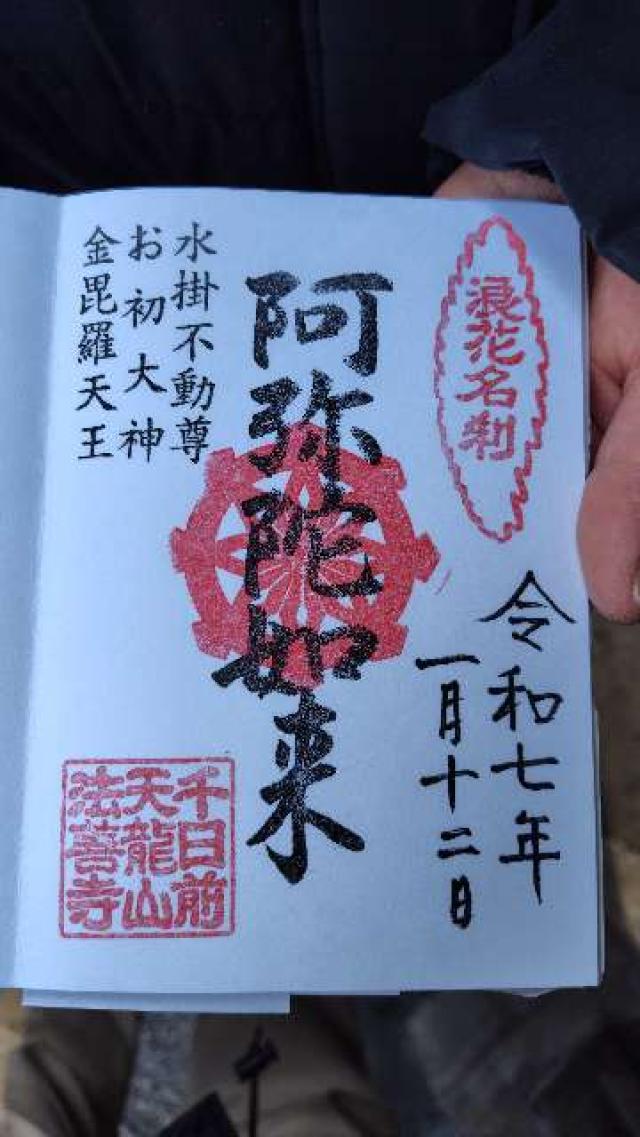 浪花名刹
令和七年
一月十二日
阿弥陀如来
水掛不動尊
お初大神
金毘羅天王
千日前
天龍山
法善寺